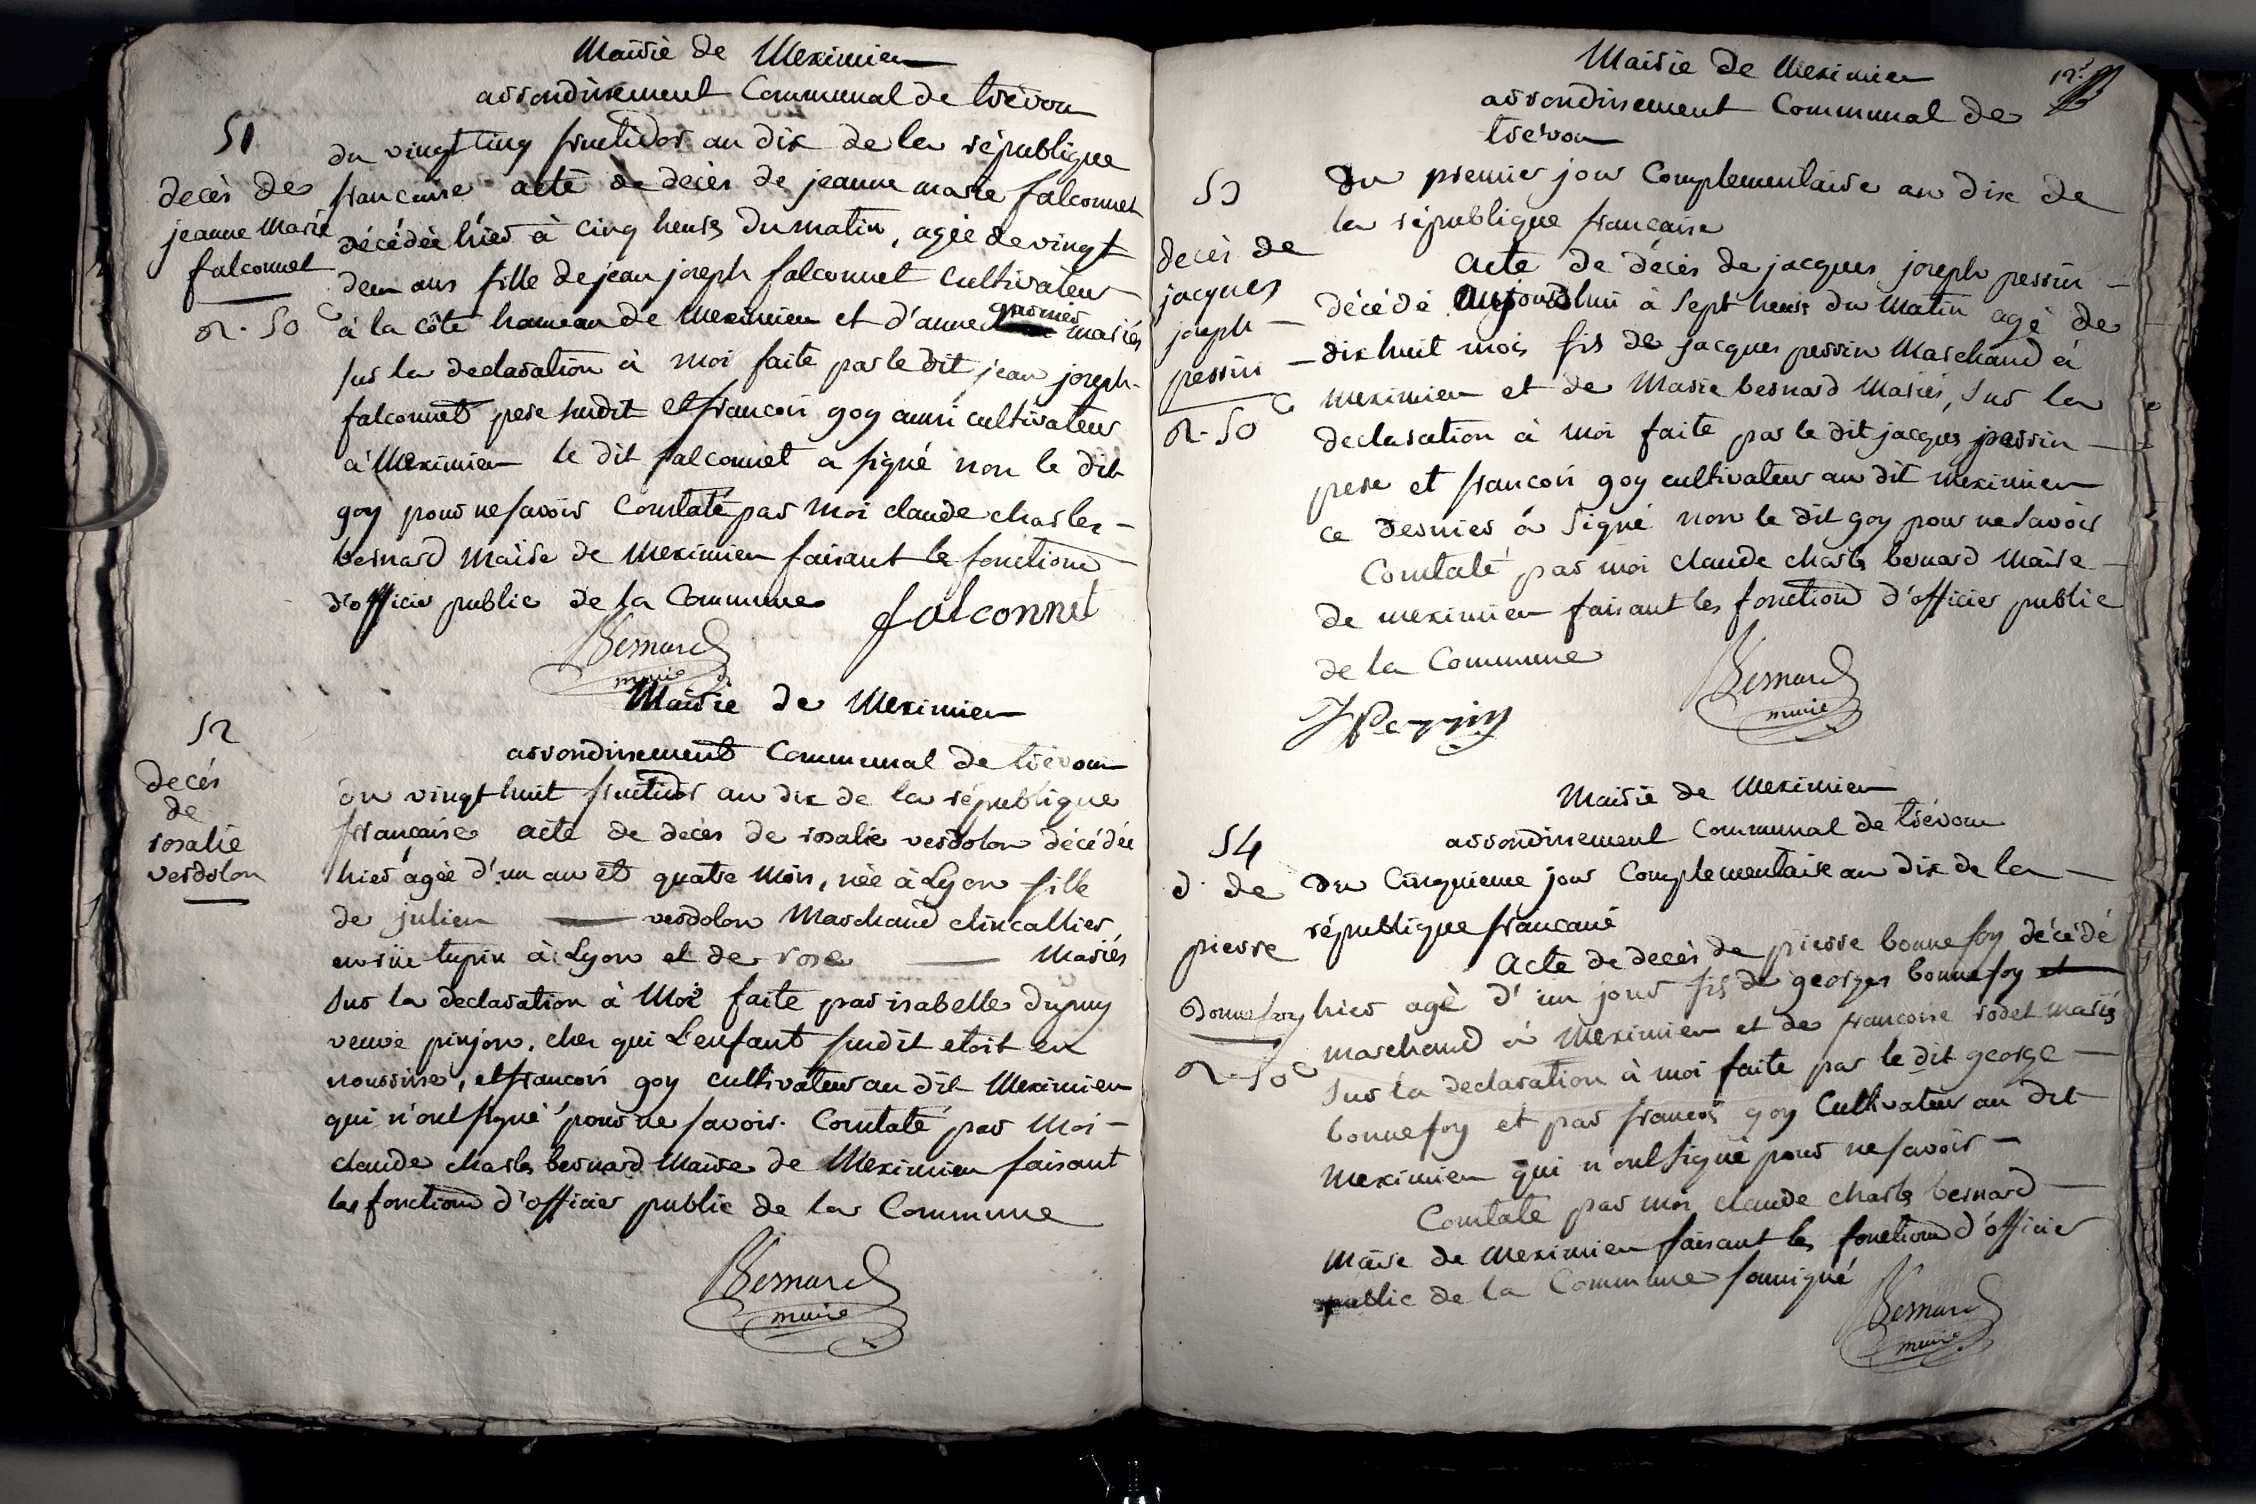 Mairie de Meximieu
arrondissement Communal de trévoux
51
du vingt cinq fructidor an dix de la république
decès de
francaise acte de decès de jeanne marie falconnet
jeanne Marie
décédée hier à cinq heures du matin, agée de vingt
falconnet
deux ans fille de jean joseph falconnet cultivateur
2. 50 c
à la côte hameau de Meximieu et d'anne mariés
sur la declaration à moi faite par le dit jean joseph
falconnet pere susdit et francois goy aussi cultivateur
à Meximieu le dit falconnet a signé non le dit
goy pour ne savoir Constaté par moi claude charles
bernard maire de Meximieu faisant les fonctions
d'officier public de la Commune
falconnet
Bernard
maire
Mairie de Meximieu
52
arrondissement Communal de trévoux
decés
de
rosalie
verdolon
du vingt huit fructidor an dix de la république
française acte de decès de rosalie verdolon décédée
hier agée d'un an et quatre mois, née à Lyon fille
de julien — verdolon Marchand clincallier
en rüe tupin à Lyon et de rose — Mariés
Sur la declaration à Moi faite par isabelle dupuy
veuve pinjon, chez qui L'enfant susdit etoit en
nourrisse, et francois goy cultivateur au dit Meximieu
qui n'ont signé pour ne savoir. Constaté par Moi
claude charles bernard Maire de Meximieu faisant
les fonctions d'officier public de la Commune
Bernard
maire
Mairie de Meximieu
arrondissement Communal de
trevoux
53
Du premier jour Complementaire an dix de
la république française
decès de
jacques
joseph
perrin
2. 50 c
Acte de décès de jacques joseph perrin
décédé Aujourdhui à Sept heures du Matin agé de
dix huit mois fils de jacques perrin Marchand à
Meximieu et de Marie bernard Mariés, Sur la
declaration à moi faite par le dit jacques perrin
pere et francois goy cultivateur au dit Meximieu
ce dernier à Signé non le dit goy pour ne Savoir
Constaté par moi claude charles bernard Maire
de meximieu faisant les fonctions d'officier public
de la Commune
Bernard
maire
JPerrin
Mairie de Meximieu
arrondissement Communal de trévoux
54
d. de
pierre
bonnefoy
2. 50 c
Du Cinquieme jour Complementaire an dix de la
république francaise
Acte de decès de pierre bonnefoy décédé
hier agé d'un jour fils de georges bonnefoy
marchand à Meximieu et de francoise rodet mariés
Sur la declaration à moi faite par le dit george
bonnefoy et par francois goy Cultivateur au dit
Meximieu qui n'ont Signé pour ne savoir
Constaté par moi claude charles bernard
Maire de Meximieu faisant les fonctions d'officier
public de la Commune soussigné
Bernard
maire